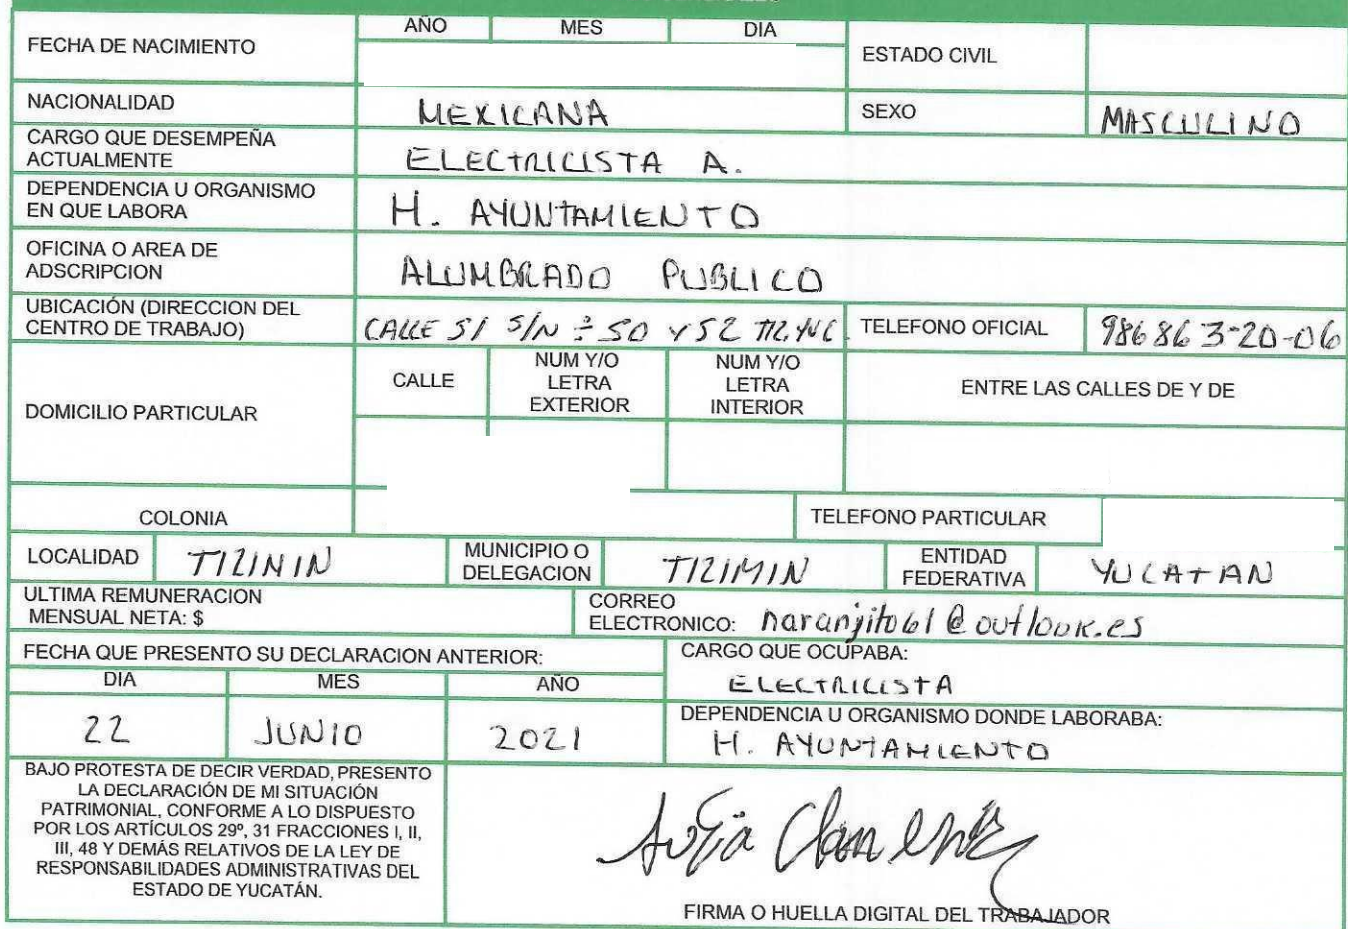 AÑO MES DIA
FECHA DE NACIMIENTO
ESTADO CIVIL
NACIONALIDAD MEXICANA SEXO MASCULINO
CARGO QUE DESEMPEÑA
ACTUALMENTE
ELECTRICISTA A.
DEPENDENCIA U ORGANISMO
EN QUE LABORA
H. AYUNTAMIENTO
OFICINA O AREA DE
ADSCRIPCION
ALUMBRADO PUBLICO
UBICACIÓN (DIRECCION DEL
CENTRO DE TRABAJO)
CALLE 51 S/N 50 Y 52 TIZ, YUC. TELEFONO OFICIAL 986 86 3-20-06
DOMICILIO PARTICULAR
CALLE
NUM Y/O
LETRA
EXTERIOR
NUM Y/O
LETRA
INTERIOR
ENTRE LAS CALLES DE Y DE
COLONIA TELEFONO PARTICULAR
LOCALIDAD TIZININ
MUNICIPIO O
DELEGACION
TIZIMIN
ENTIDAD
FEDERATIVA
YUCATAN
ULTIMA REMUNERACION
MENSUAL NETA: $
CORREO
ELECTRONICO: naranjito61@outlook.es
FECHA QUE PRESENTO SU DECLARACION ANTERIOR:
DIA MES AÑO
22 JUNIO 2021
CARGO QUE OCUPABA:
ELECTRICISTA
DEPENDENCIA U ORGANISMO DONDE LABORABA:
H. AYUNTAMIENTO
BAJO PROTESTA DE DECIR VERDAD, PRESENTO
LA DECLARACIÓN DE MI SITUACIÓN
PATRIMONIAL, CONFORME A LO DISPUESTO
POR LOS ARTÍCULOS 29º, 31 FRACCIONES I, II,
III, 48 Y DEMÁS RELATIVOS DE LA LEY DE
RESPONSABILIDADES ADMINISTRATIVAS DEL
ESTADO DE YUCATÁN.
FIRMA O HUELLA DIGITAL DEL TRABAJADOR